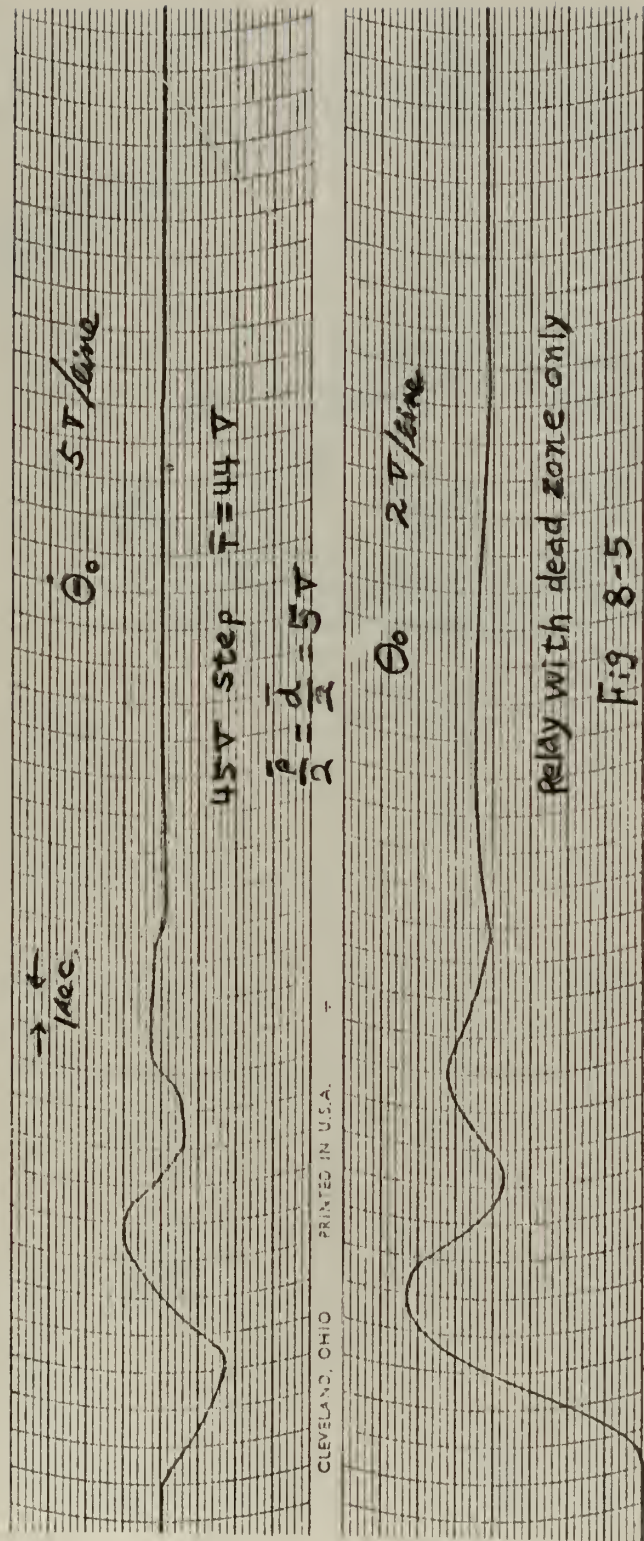 → ←
1 sec.
Θ̇₀ 5 V/line
45 V step T̄ = 44 V
ρ̄/2 = d̄/2 = 5 V
CLEVELAND, OHIO PRINTED IN U.S.A.
Θ₀ 2 V/line
Relay with dead zone only
Fig 8-5